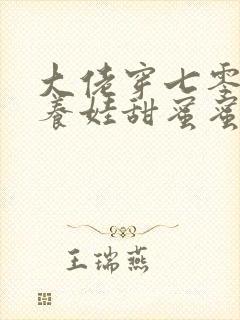 大佬穿七零
养娃甜蜜蜜
王瑞燕